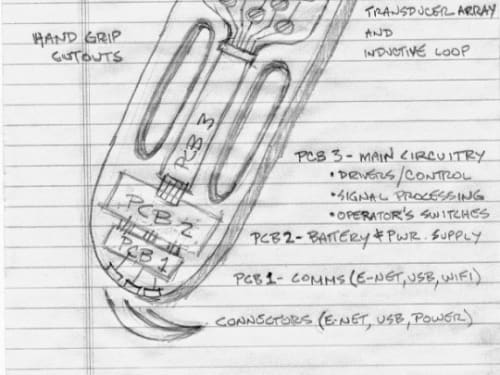 TRANSDUCER ARRAY
AND
INDUCTIVE LOOP
HAND GRIP
CUTOUTS
PCB 3
PCB 2
PCB 1
PCB 3 - MAIN CIRCUITRY
• DRIVERS/CONTROL
• SIGNAL PROCESSING
• OPERATOR'S SWITCHES
PCB 2 - BATTERY & PWR. SUPPLY
PCB 1 - COMMS (E-NET, USB, WIFI)
CONNECTORS (E-NET, USB, POWER)